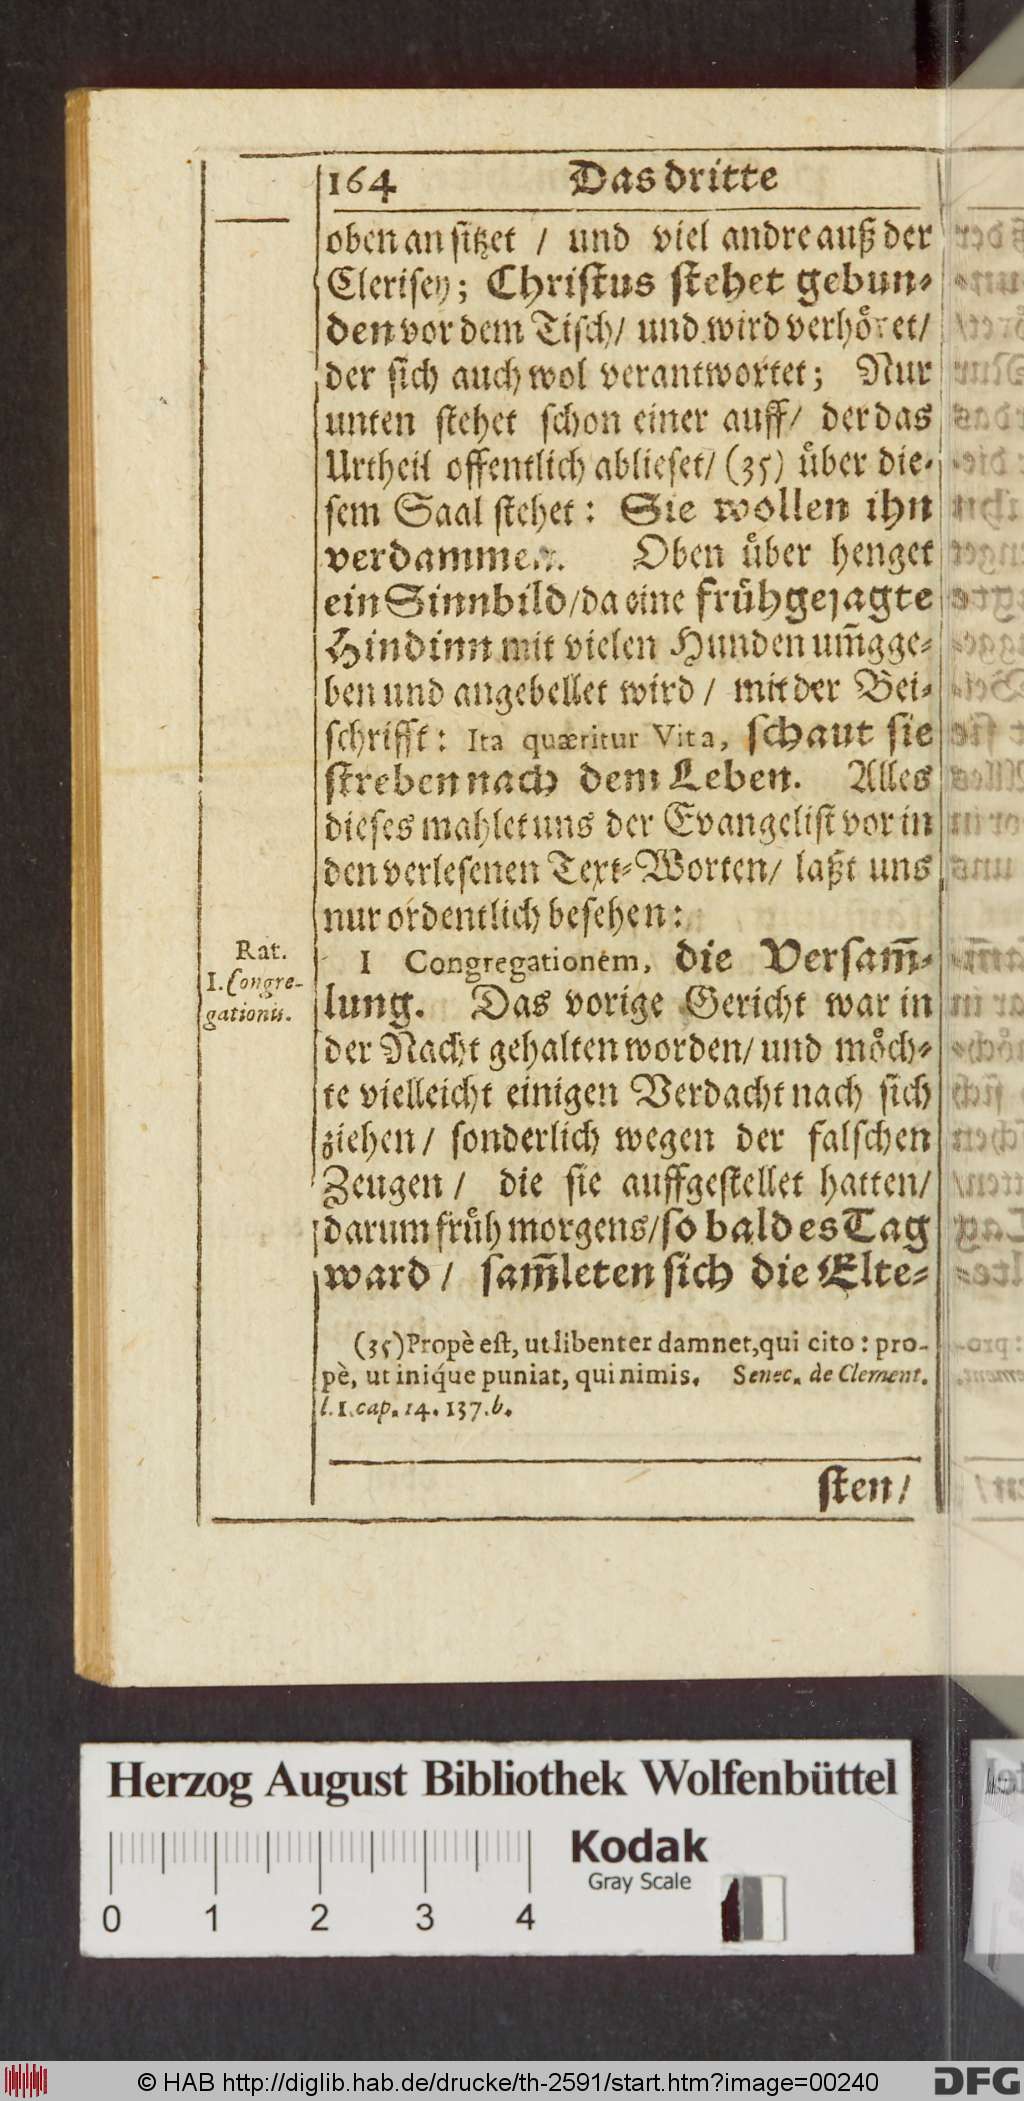 164 Das dritte
oben an sitzet / und viel andre auß der
Clerisey; Christus stehet gebun⸗
den vor dem Tisch/ und wird verhöret/
der sich auch wol verantwortet; Nur
unten stehet schon einer auff/ der das
Urtheil offentlich ablieset/ (35) über die⸗
sem Saal stehet: Sie wollen ihn
verdammen. Oben über henget
ein Sinnbild/ da eine frühgejagte
Hindinn mit vielen Hunden um̃gge⸗
ben und angebellet wird / mit der Bei⸗
schrifft: Ita quæritur Vita, schaut sie
streben nach dem Leben. Alles
dieses mahlet uns der Evangelist vor in
den verlesenen Text⸗Worten/ laßt uns
nur ordentlich besehen:
Rat.
I. Congre-
gationis.
I Congregationem, die Versam̃⸗
lung. Das vorige Gericht war in
der Nacht gehalten worden/ und möch⸗
te vielleicht einigen Verdacht nach sich
ziehen/ sonderlich wegen der falschen
Zeugen / die sie auffgestellet hatten/
darum früh morgens/ so bald es Tag
ward / sam̃leten sich die Elte⸗
(35) Propè est, ut libenter damnet, qui cito: pro-
pè, ut iniq́ue puniat, qui nimis. Senec. de Clement.
l. 1. cap. 14. 137. b.
sten/
Herzog August Bibliothek Wolfenbüttel
Kodak
Gray Scale
0 1 2 3 4
© HAB http://diglib.hab.de/drucke/th-2591/start.htm?image=00240
DFG